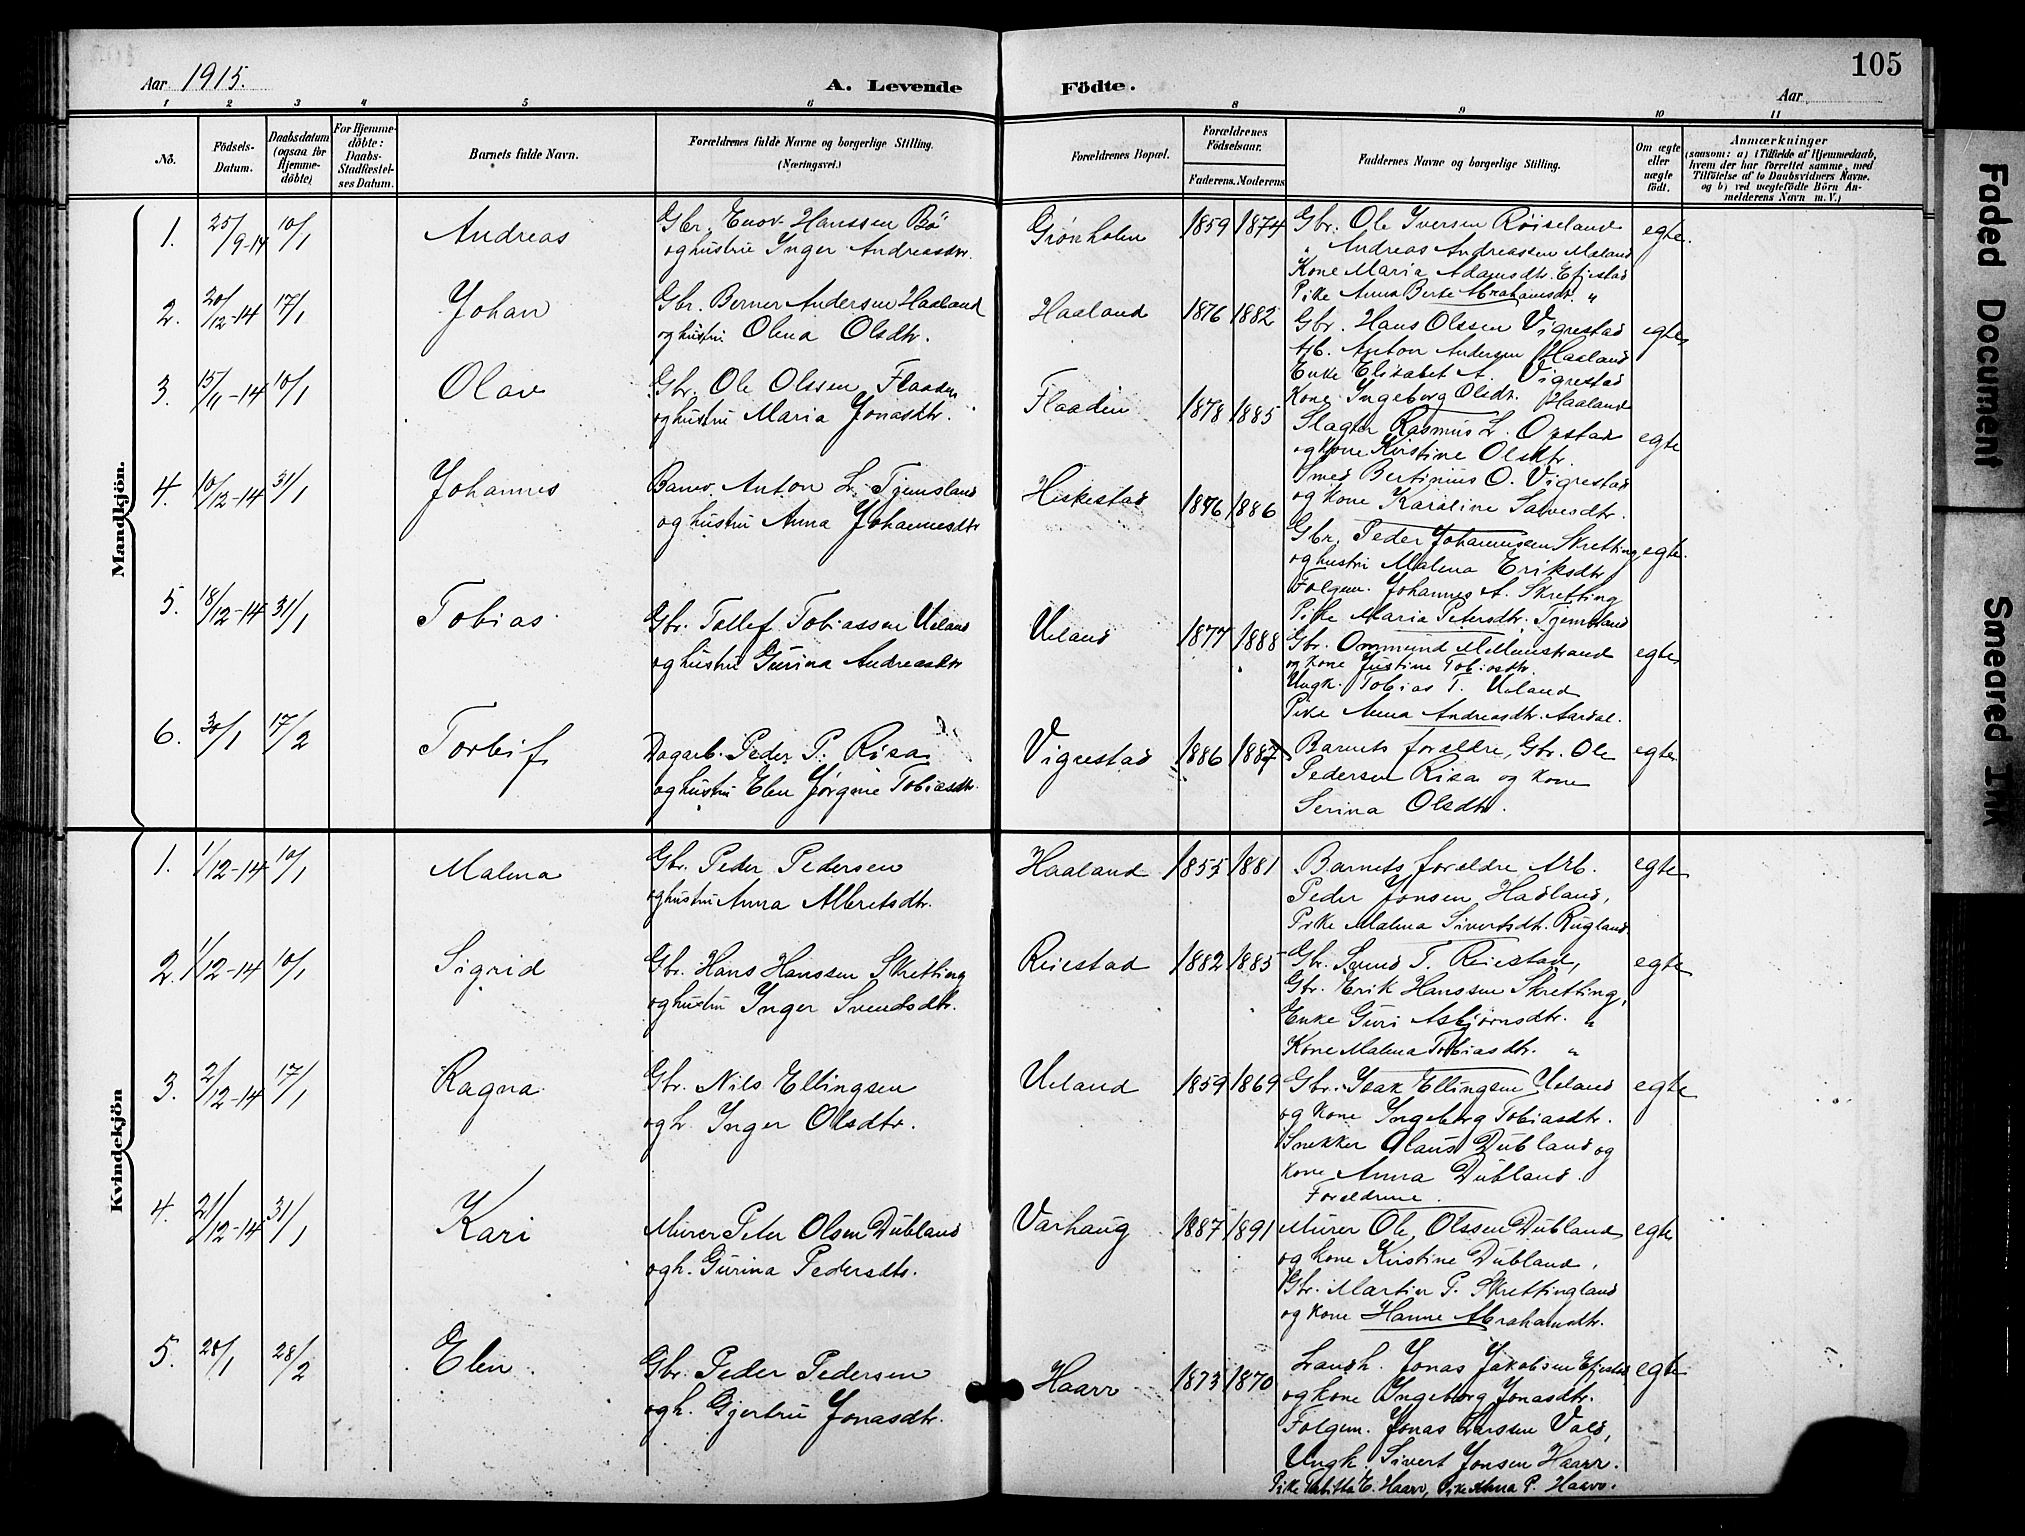 105
Aar 1915.
A. Levende Födte.
Aar
1 2 3 4 5 6 8 9 10 11
No.
Födsels-Datum.
Daabsdatum (ogsaa for Hjemme-döbte)
For Hjemme-döbte: Daabs-Stadfæstel-ses Datum.
Barnets fulde Navn.
Forældrenes fulde Navne og borgerlige Stilling.
(Næringsvei.)
Forældrenes Bopæl.
Forældrenes Födselsaar.
Faderens. Moderens
Faddernes Navne og borgerlige Stilling.
Om ægte eller uægte födt.
Anmærkninger
(saasom: a) i Tilfælde af Hjemmedaab, hvem der har forrettet samme, med Tilföielse af to Daabsvidners Navne, og b) ved uægtefödte Börn An-melderens Navn m. V.)
Mandkjön.
1. 25/9-14 10/1 Andreas
Gbr. Enov Hanssen Bö
og hustru Inger Andreasdtr.
Grönholen 1859 1874
Gbr. Ole Iversen Röiseland
" Andreas Andreassen Maland
Kone Maria Adamsdtr. Efjestad
Pike Anna Berte Abrahamsdtr. "
egte.
2. 20/12-14 17/1 Johan
Gbr. Berner Andersen Haaland
og hustru Olena Olsdtr.
Haaland 1876 1882
Gbr. Hans Olssen Vigrestad
Arb. Anton Andersen Haaland
Enke Elisabet A. Vigrestad
Kone Ingeborg Olsdtr. Haaland
egte
3. 15/11-14 10/1 Olav
Gbr. Ole Olssen Flaaden
og hustru Maria Jonasdtr.
Flaaden 1878 1885
Slagter Rasmus L. Opstad
og kone Kirstine Olsdtr.
Smed Bertinius O. Vigrestad
og kone Karoline Salvesdtr.
egte
4. 10/12-14 31/1 Johannes
Banev. Anton L. Tjemsland
og hustru Anna Johannesdtr
Heskestad 1876 1886
Gbr. Peder Johannessen Skretting
og hustru Malena Eriksdtr
Folgem. Johannes A. Skretting
Pike Maria Petersdtr. Tjemsland
egte.
5. 18/12-14 31/1 Tobias
Gbr. Tollef Tobiassen Ueland
og hustru Gurina Andreasdtr
Ueland 1877 1888
Gbr. Ommund Mellemstrand
og kone Justine Tobiasdtr.
Ungk. Tobias T. Ueland
Pike Anna Andreasdtr. Aardal.
egte
6. 30/1 17/2 Torleif
Dagarb. Peder P. Risa
og hustru Elen Jørgine Tobiasdtr.
Vigrestad 1886 1887
Barnets foreldre, Gbr. Ole
Pedersen Risa og kone
Serina Olsdtr.
egte
Kvindekjön
1. 1/12-14 10/1 Malena
Gbr. Peder Pedersen
og hustru Anna Albretsdtr.
Haaland 1855 1881
Barnets foreldre Arb.
Peder Jonsen Haaland,
Pike Malena Sivertsdtr. Rugland.
egte
2. 1/12-14 10/1 Sigrid
Gbr. Hans Hanssen Skretting
og hustru Inger Svendsdtr.
Reiestad 1882 1885
Gbr. Svend T. Reiestad,
Gbr. Erik Hanssen Skretting,
Enke Guri Asbjørnsdtr. "
Kone Malena Tobiasdtr. "
egte
3. 2/12-14 17/1 Ragna
Gbr. Nils Ellingsen
og h. Inger Olsdtr.
Ueland 1859 1869
Gbr. Isak Ellingsen Ueland
og kone Ingeborg Tobiasdtr.
Snekker Olaus Dubland og
kone Anna Dubland.
Foreldrene.
egte
4. 21/12-14 31/1 Kari
Murer Peter Olsen Dubland
og h. Gurina Pedersdtr.
Varhaug 1887 1891
Murer Ole Olssen Dubland
og kone Kirstine Dubland,
Gbr. Martin P. Skrettingland
og kone Hanne Abrahamsdtr.
egte
5. 28/1 28/2 Elen.
Gbr. Peder Pedersen
og h. Gjertru Jonasdtr.
Haarr 1873 1870
Landh. Jonas Jakobsen Efjestad
og kone Ingeborg Jonasdtr.
Folgem. Jonas Larssen Vals,
Ungk. Sivert Jonsen Haarr.
Pike Tabitta E. Haarr, Pike Anna P. Haarr.
egte
Faded Document
Smeared Ink